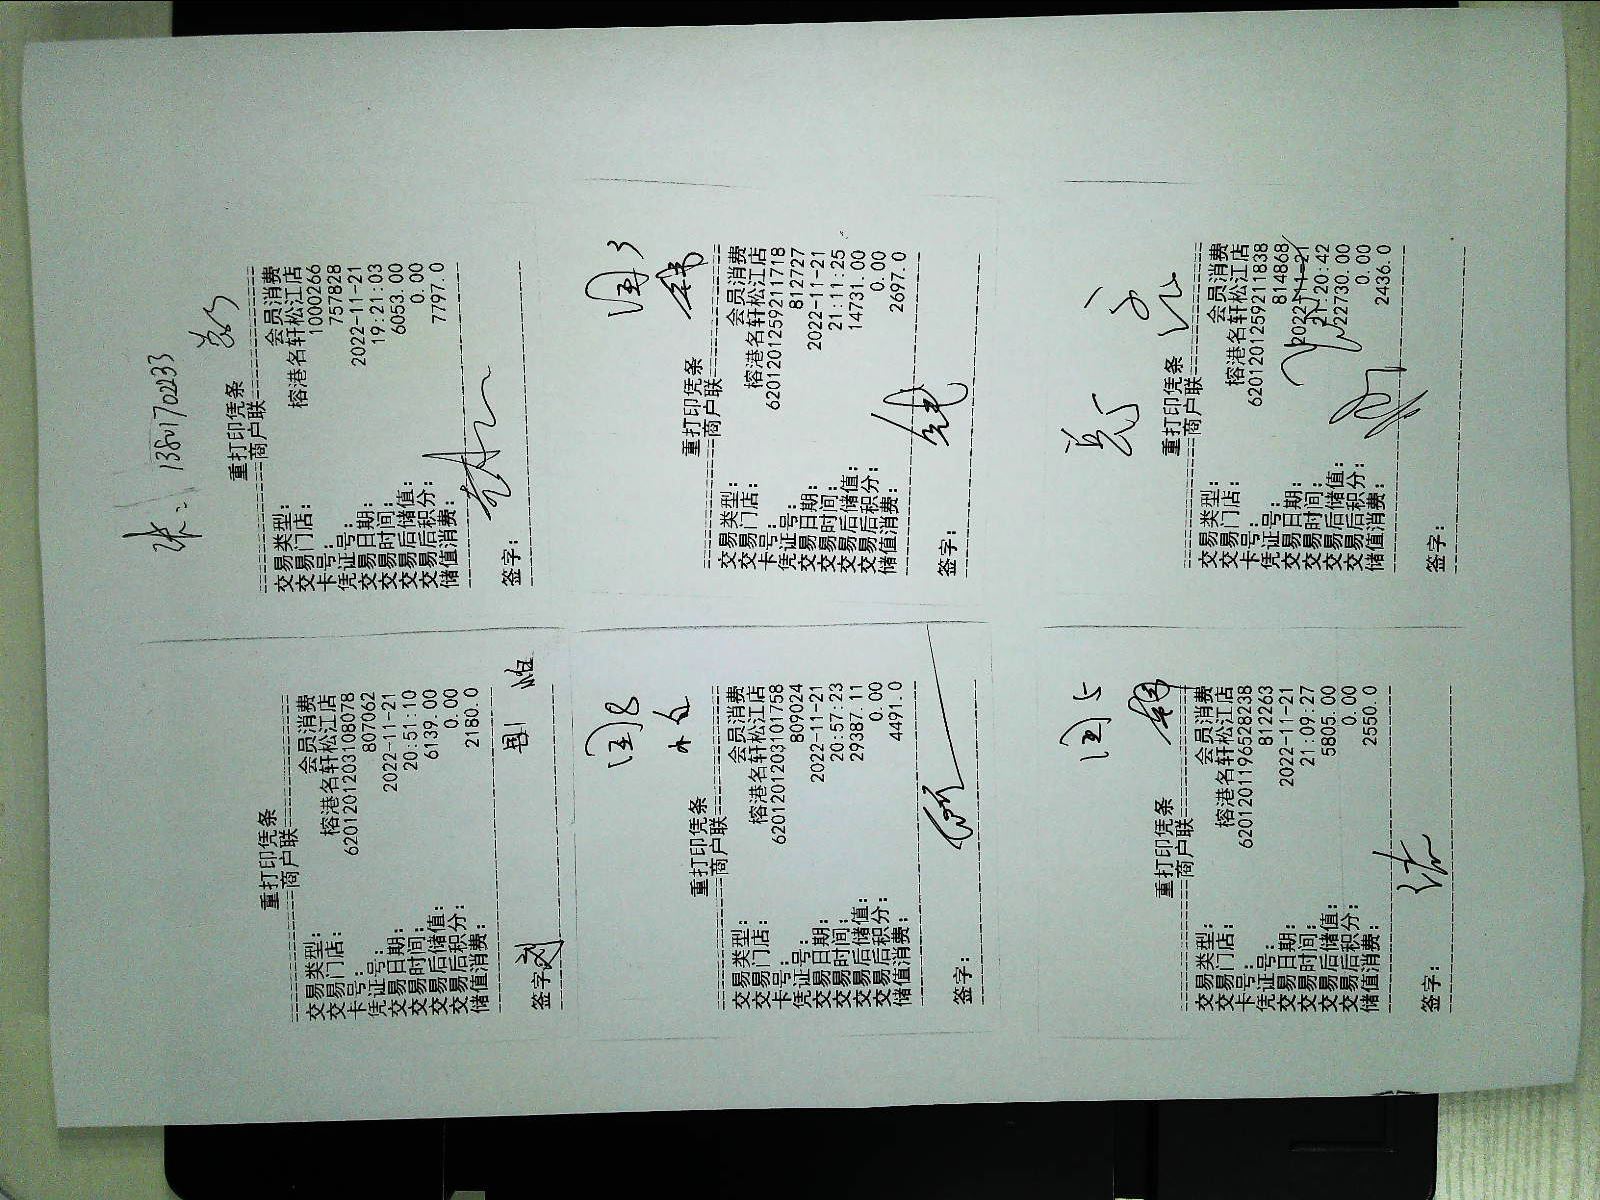 重打印凭条
商户联
交易类型： 会员消费
交易门店： 榕港名轩松江店
卡号： 6201201203108078
凭证号： 807062
交易日期： 2022-11-21
交易时间： 20:51:10
交易后储值： 6139.00
交易后积分： 0.00
储值消费： 2180.0
签字：刘
13801702233
重打印凭条
商户联
交易类型： 会员消费
交易门店： 榕港名轩松江店
卡号： 1000266
凭证号： 757828
交易日期： 2022-11-21
交易时间： 19:21:03
交易后储值： 6053.00
交易后积分： 0.00
储值消费： 7797.0
签字：
重打印凭条
商户联
交易类型： 会员消费
交易门店： 榕港名轩松江店
卡号： 6201201203101758
凭证号： 809024
交易日期： 2022-11-21
交易时间： 20:57:23
交易后储值： 29387.11
交易后积分： 0.00
储值消费： 4491.0
签字：
重打印凭条
商户联
交易类型： 会员消费
交易门店： 榕港名轩松江店
卡号： 6201201259211718
凭证号： 812727
交易日期： 2022-11-21
交易时间： 21:11:25
交易后储值： 14731.00
交易后积分： 0.00
储值消费： 2697.0
签字：
重打印凭条
商户联
交易类型： 会员消费
交易门店： 榕港名轩松江店
卡号： 6201201196528238
凭证号： 812263
交易日期： 2022-11-21
交易时间： 21:09:27
交易后储值： 5805.00
交易后积分： 0.00
储值消费： 2550.0
签字：
重打印凭条
商户联
交易类型： 会员消费
交易门店： 榕港名轩松江店
卡号： 6201201259211838
凭证号： 814868
交易日期： 2022-11-21
交易时间： 21:20:42
交易后储值： 22730.00
交易后积分： 0.00
储值消费： 2436.0
签字：